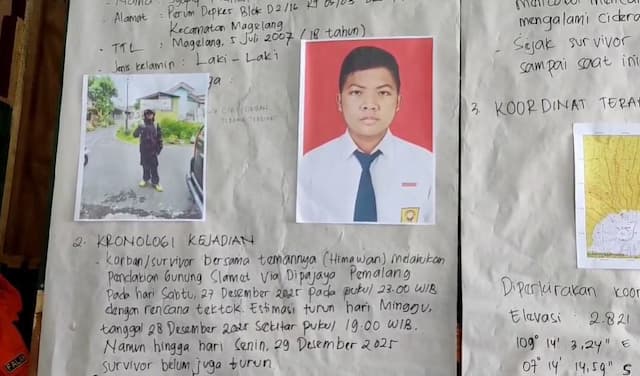 Alamat : Perum Depkes Blok D2/16 RT 05/03
Kecamatan Magelang
TTL : Magelang, 5 Juli 2007 (18 tahun)
Jenis Kelamin : Laki - Laki
2. KRONOLOGI KEJADIAN
- Korban/survivor bersama temannya (Himawan) melakukan
Pendakian Gunung Slamet Via Dipajaya Pemalang
Pada hari Sabtu, 27 Desember 2025 pada pukul 23.00 WIB
dengan rencana tektok. Estimasi turun hari Minggu,
tanggal 28 Desember 2025 sekitar pukul 19.00 WIB.
Namun hingga hari Senin, 29 Desember 2025
survivor belum juga turun
mengalami cidera
- Sejak survivor
sampai saat ini
3. KOORDINAT TERA
Diperkirakan koor
Elevasi : 2.821
109° 14' 3.24" E
07° 14' 14.59" S